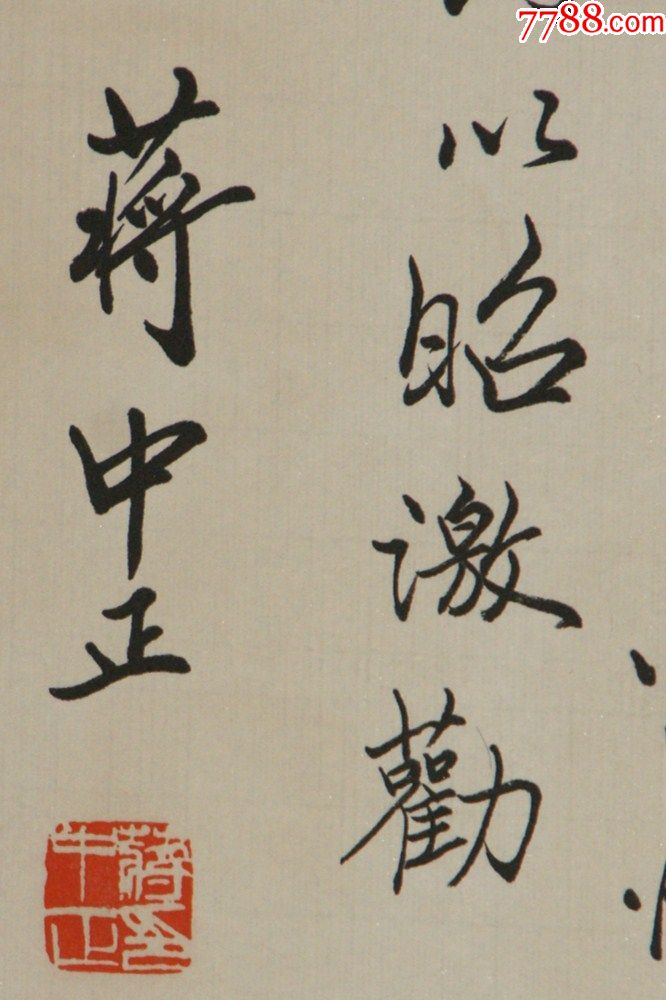 7788.com
以昭激勸
蔣中正
蔣中正印